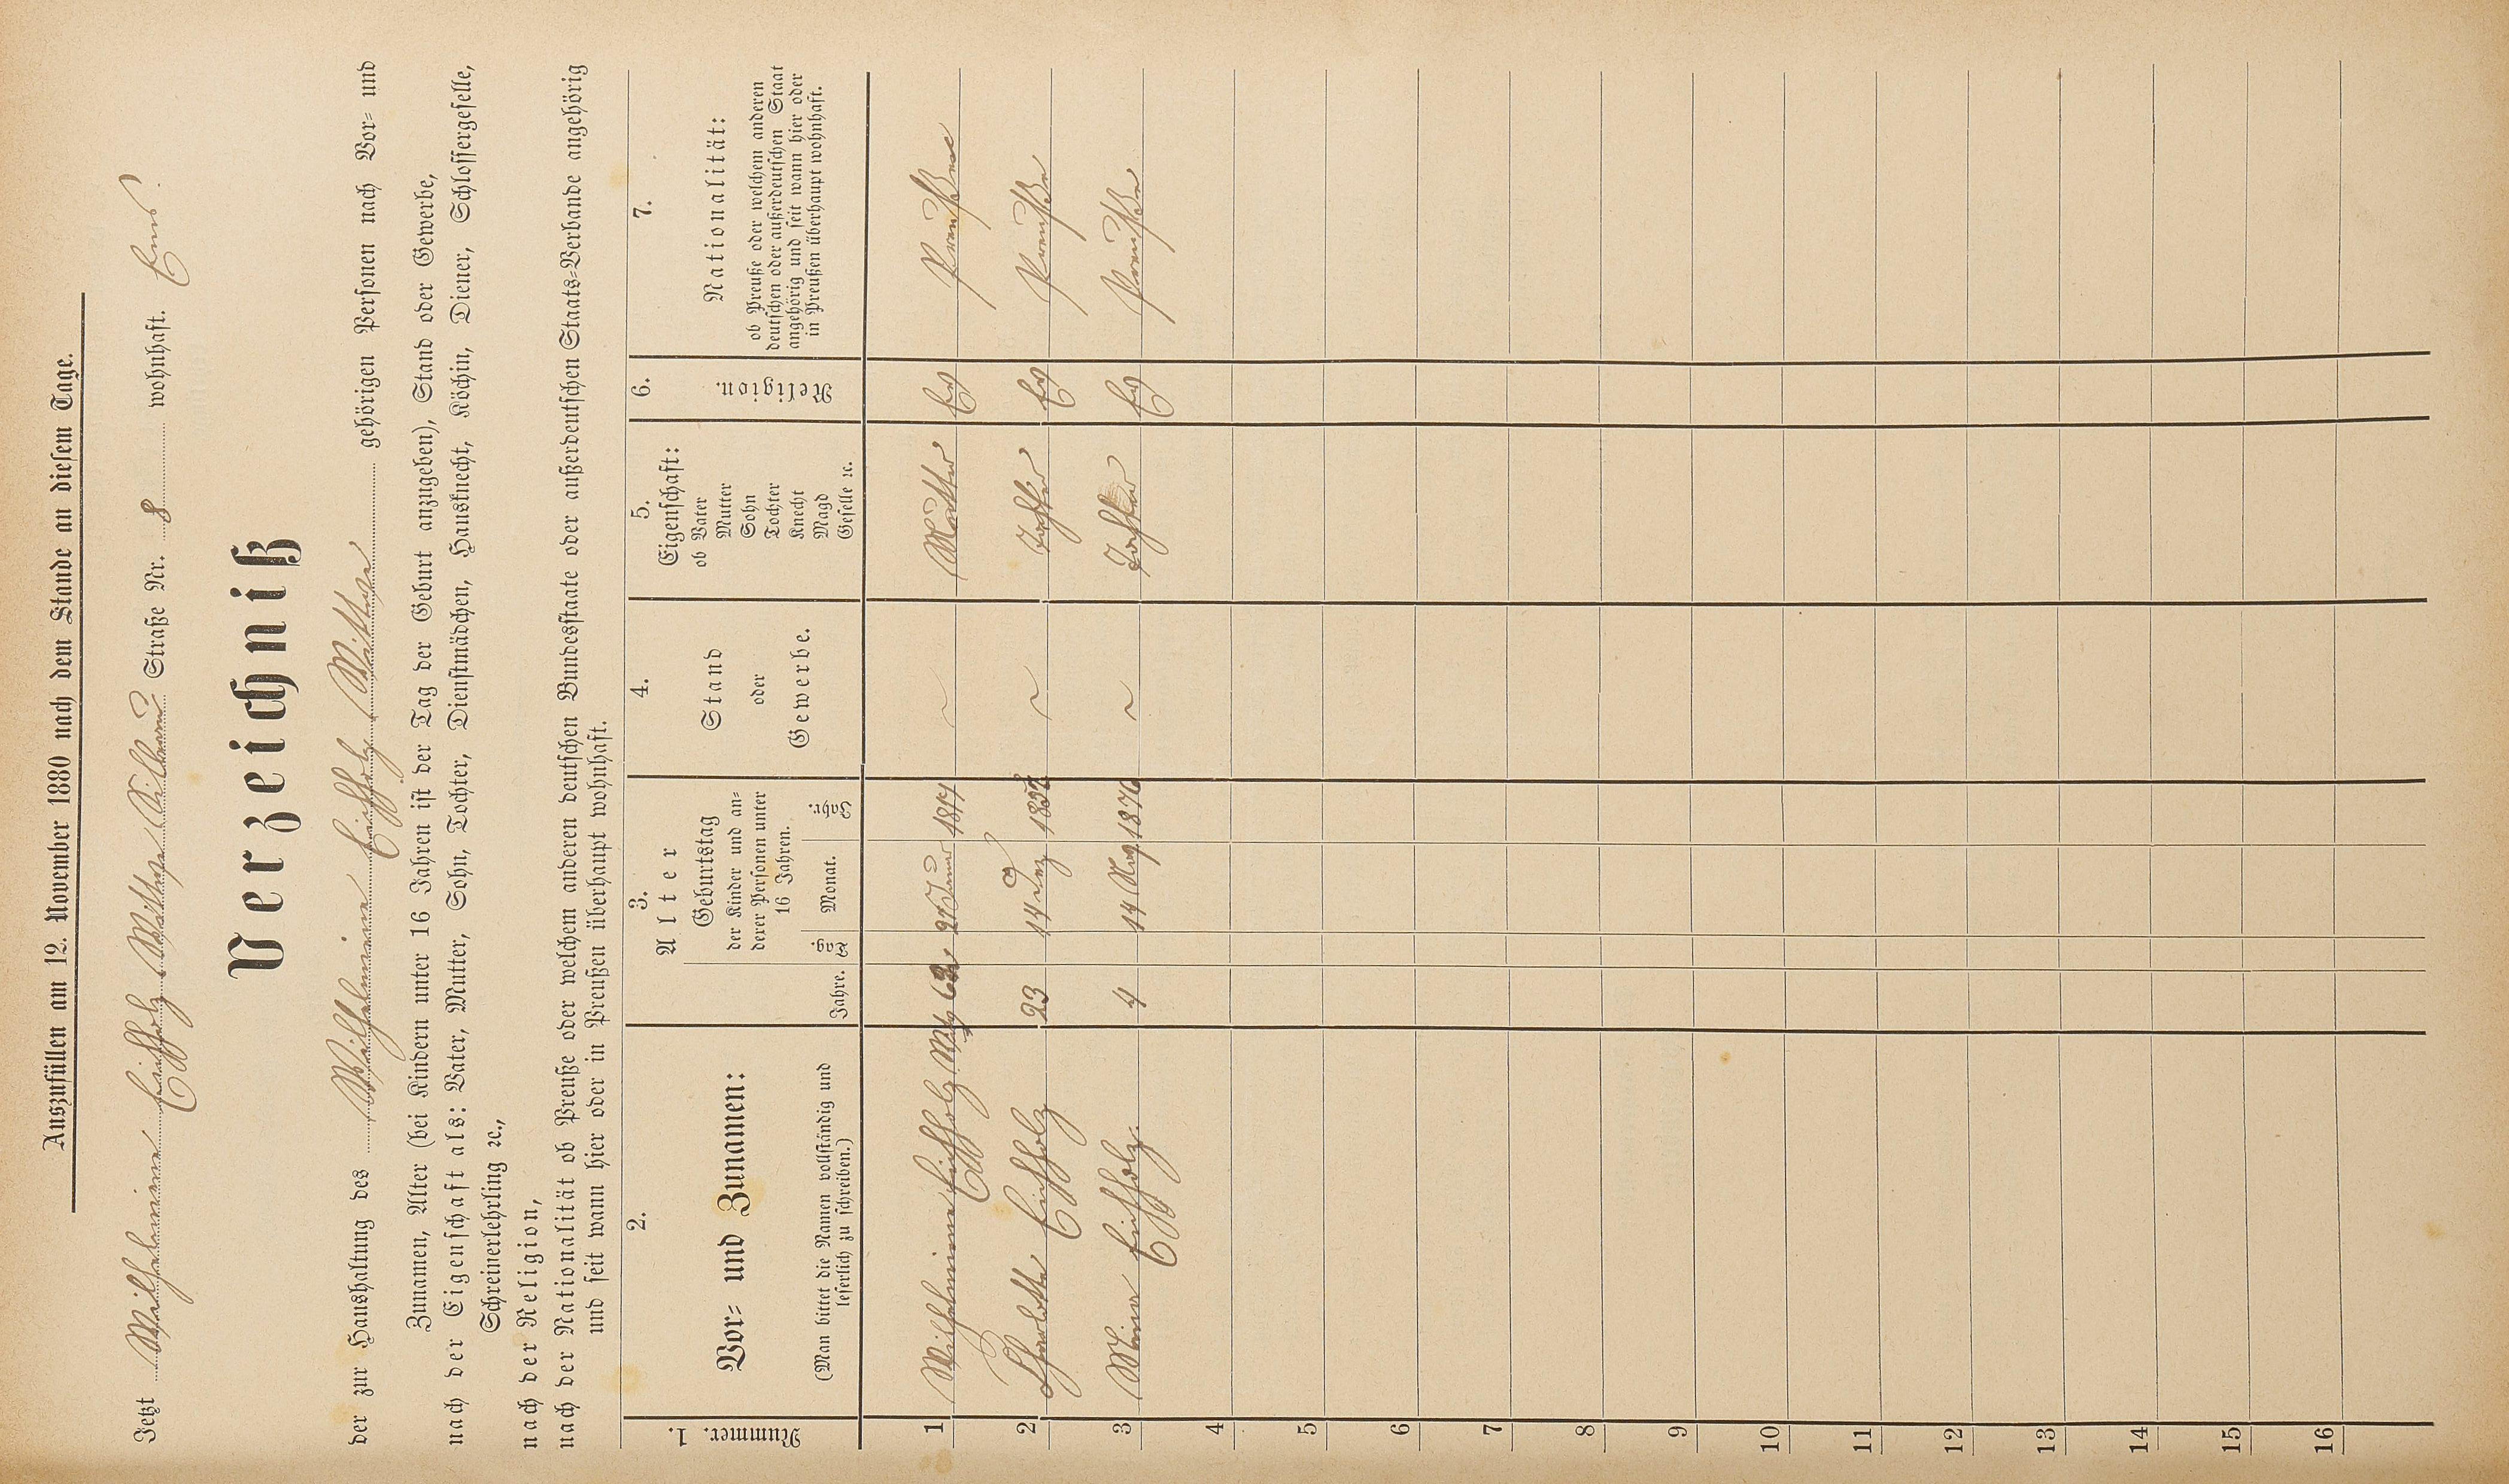 Auszufüllen am 12. November 1880 nach dem Stande an diesem Tage.
Jetzt Wilhelmine Eichholz Wittwe Straße Nr. 8 wohnhaft.
Verzeichniß
der zur Haushaltung des Wilhelmine Eichholz Wittwe gehörigen Personen nach Vor- und
Zunamen, Alter (bei Kindern unter 16 Jahren ist der Tag der Geburt anzugeben), Stand oder Gewerbe,
nach der Eigenschaft als: Vater, Mutter, Sohn, Tochter, Dienstmädchen, Hausknecht, Köchin, Diener, Schlossergeselle,
Schreinerlehrling ꝛc.,
nach der Religion,
nach der Nationalität ob Preuße oder welchem anderen deutschen Bundesstaate oder außerdeutschen Staats-Verbande angehörig
und seit wann hier oder in Preußen überhaupt wohnhaft.
1. Nummer.
2.
Vor- und Zunamen:
(Man bittet die Namen vollständig und
leserlich zu schreiben.)
3.
Alter
Jahre.
Geburtstag
der Kinder und an-
derer Personen unter
16 Jahren.
Tag. Monat. Jahr.
4.
Stand
oder
Gewerbe.
5.
Eigenschaft:
ob Vater
Mutter
Sohn
Tochter
Knecht
Magd
Geselle ꝛc.
6.
Religion.
7.
Nationalität:
ob Preuße oder welchem anderen
deutschen oder außerdeutschen Staat
angehörig und seit wann hier oder
in Preußen überhaupt wohnhaft.
1 Wilhelmine Eichholz Mutter Ev Preuße
2 Charlotte Eichholz 23 14 Dez Tochter Ev Preuße
3 Mina Eichholz. 4 14 1876 Tochter Ev Preuße
4
5
6
7
8
9
10
11
12
13
14
15
16